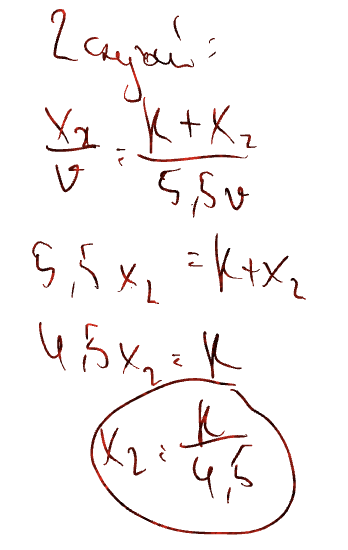 2 случай:
x₂/v = (k + x₂)/5,5v
5,5x₂ = k + x₂
4,5x₂ = k
x₂ = k/4,5